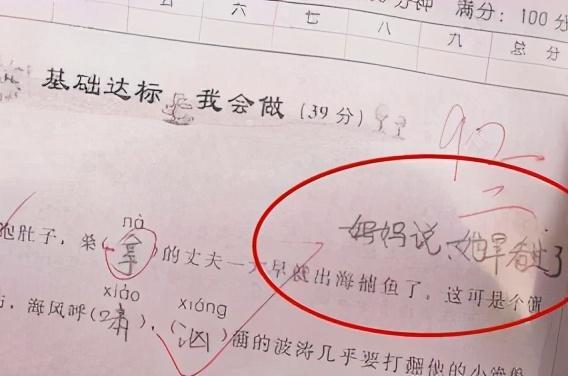 分钟 满分：100分
六 七 八 九 总分
基础达标 我会做（39分）
92
妈妈说，她早看 了
nà
肚子，桑（拿）的丈夫一大早就出海捕鱼了。这可是个
xiào xiónɡ
，海风呼（啸），（汹）涌的波涛几乎要打翻他的小渔船